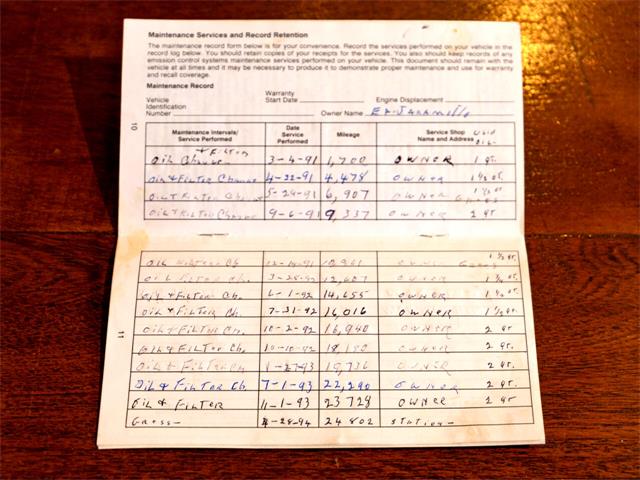 Maintenance Services and Record Retention
The maintenance record form below is for your convenience. Record the services performed on your vehicle in the
record log below. You should retain copies of your receipts for the services. You also should keep records of any
emission control systems maintenance services performed on your vehicle. This document should remain with the
vehicle at all times and it may be necessary to produce it to demonstrate proper maintenance and use for warranty
and recall coverage.
Maintenance Record
Vehicle Identification Number
Warranty Start Date
Engine Displacement
Owner Name Ed Jaramillo
10
Maintenance Intervals/ Service Performed Date Service Performed Mileage Service Shop Name and Address Used OIL-
+ FILTER
OIL Change 3-4-91 1,700 OWNER 1 qt.
OIL + FILTER Change 4-22-91 4,478 OWNER 1 1/2 qt.
OIL + FILTER Change 5-24-91 6,907 OWNER 1 1/2
OIL + FILTER Change 9-6-91 9,337 OWNER 2 qt
11
OIL FILTER Ch. OWNER
OIL FILTER Ch. 3-28-92 12,607 OWNER
OIL + FILTER Ch. 6-1-92 14,655 OWNER
OIL + FILTER Ch. 7-31-92 16,016 OWNER 1 1/2 qt
OIL + FILTER Ch. 10-2-92 16,940 OWNER 2 qt.
OIL + FILTER Ch. OWNER 2 qt.
OIL + FILTER Ch 1-27-93 19,736 OWNER 2 qt.
OIL + FILTER Ch. 7-1-93 22,290 OWNER 2 qt.
OIL + FILTER 11-1-93 23728 OWNER 2 qt
4-28-94 24802 STATION-